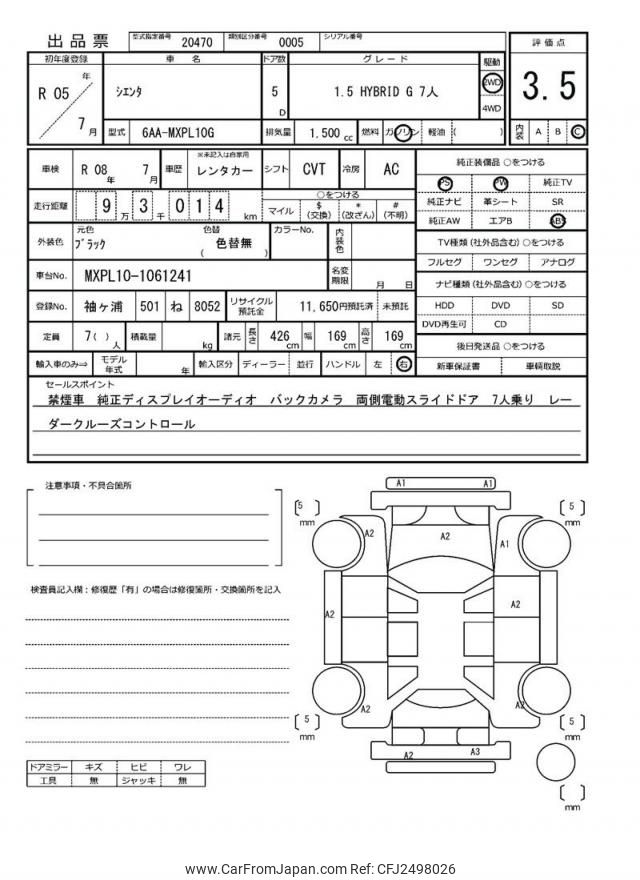 出品票
型式指定番号 20470 類別区分番号 0005 シリアル番号
初年度登録 車名 ドア数 グレード 駆動 評価点
R 05 年 7 月
シエンタ 5 D 1.5 HYBRID G 7人 2WD 4WD
3.5
型式 6AA-MXPL10G 排気量 1,500 cc 燃料 ガソリン 軽油 ( )
内装 A B C
車検 R 08 年 7 月 車歴 ※未記入は自家用 レンタカー シフト CVT 冷房 AC
走行距離 9 万 3 千 0 1 4 km
○をつける
マイル $(交換) *(改ざん) #(不明)
外装色 元色 ブラック 色替 色替無 ( ) カラーNo. 内装色
車台No. MXPL10-1061241 名変期限 月 日
登録No. 袖ヶ浦 501 ね 8052 リサイクル預託金 11,650円預託済 未預託
定員 7( )人 積載量 kg 諸元 長さ 426 cm 幅 169 cm 高さ 169 cm
輸入車のみ⇒ モデル年式 年 輸入区分 ディーラー 並行 ハンドル 左 右
純正装備品 ○をつける
PS PW 純正TV
純正ナビ 革シート SR
純正AW エアB ABS
TV種類(社外品含む)○をつける
フルセグ ワンセグ アナログ
ナビ種類(社外品含む)○をつける
HDD DVD SD
DVD再生可 CD
後日発送品 ○をつける
新車保証書 車輌取説
セールスポイント
禁煙車 純正ディスプレイオーディオ バックカメラ 両側電動スライドドア 7人乗り レー
ダークルーズコントロール
注意事項・不具合箇所
検査員記入欄：修復歴「有」の場合は修復箇所・交換箇所を記入
ドアミラー キズ ヒビ ワレ
工具 無 ジャッキ 無
A1 A1
[5] mm
[5] mm
A2 A2 A1
A2 A2
A2 A2
[5] mm
[5] mm
A2 A3
[ ] mm
www.CarFromJapan.com Ref: CFJ2498026